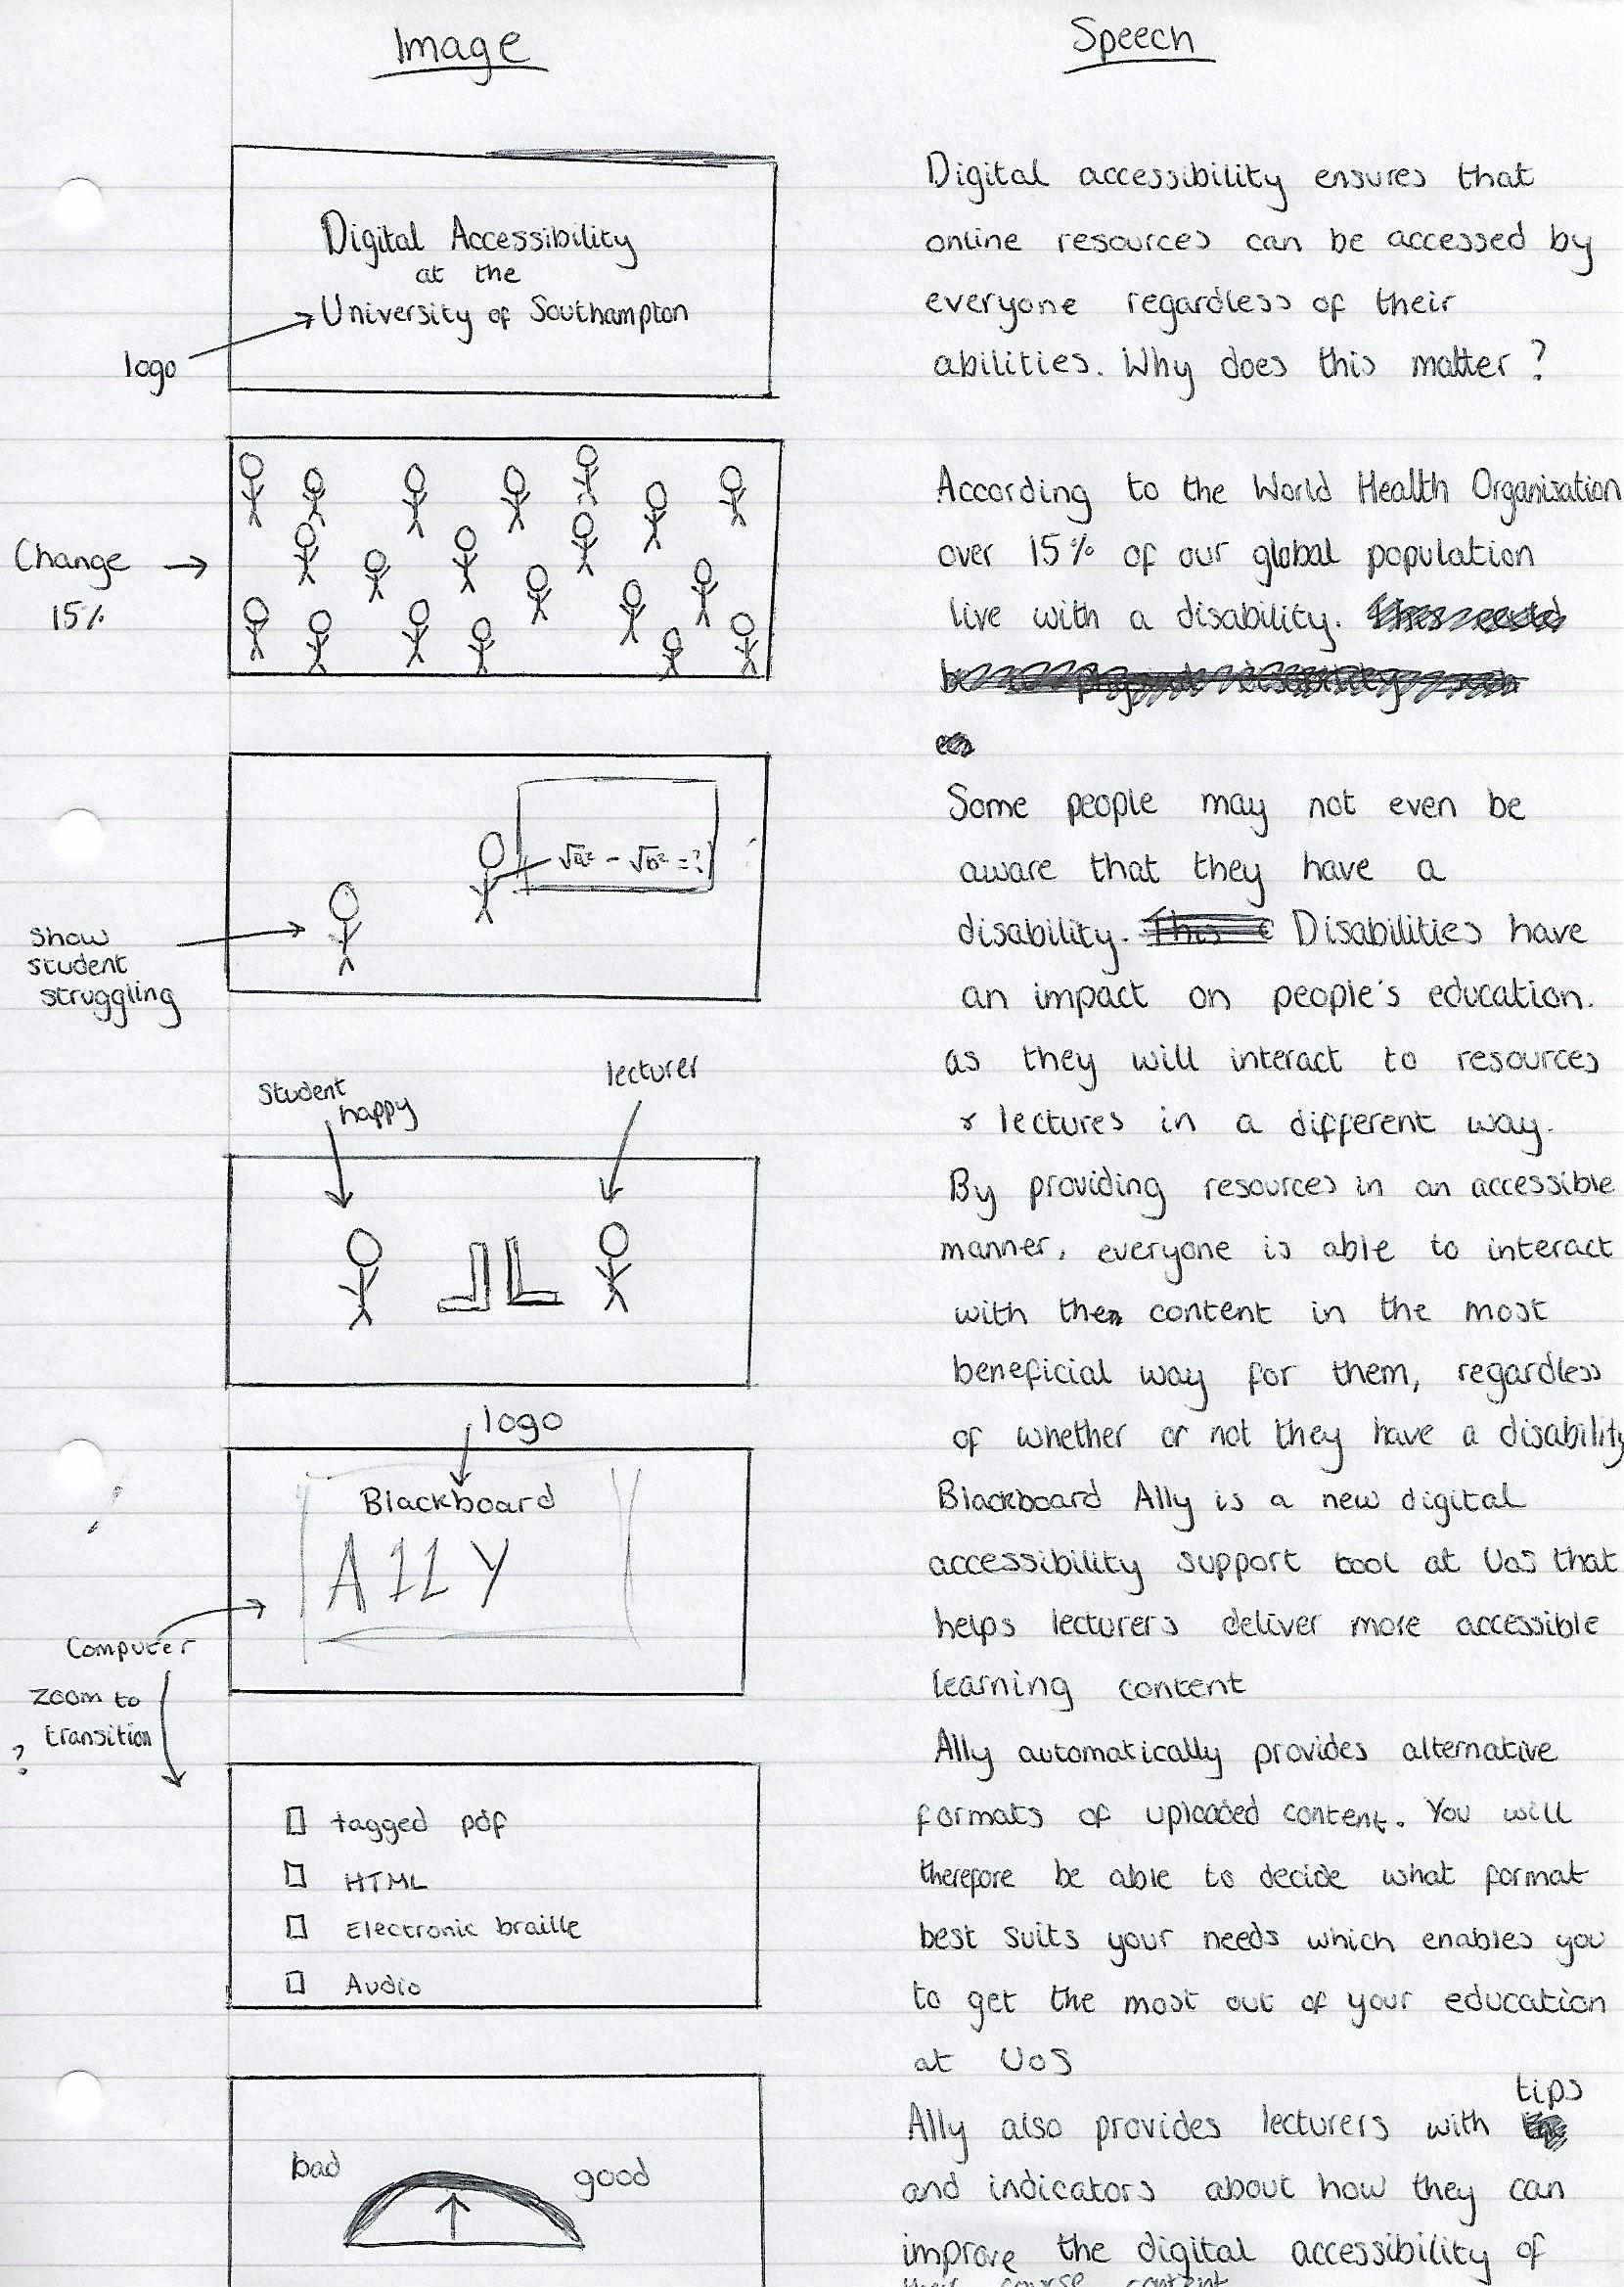 Image
Speech
Digital Accessibility
at the
University of Southampton
logo
Digital accessibility ensures that
online resources can be accessed by
everyone regardless of their
abilities. Why does this matter?
Change
15%
According to the World Health Organisation
over 15% of our global population
live with a disability.
Show
student
struggling
√a² - √b² = ?
Some people may not even be
aware that they have a
disability. This Disabilities have
an impact on people's education.
as they will interact to resources
& lectures in a different way.
Student
happy
lecturer
By providing resources in an accessible
manner, everyone is able to interact
with the content in the most
beneficial way for them, regardless
of whether or not they have a disability
logo
Blackboard
ALLY
Computer
Zoom to
transition
?
Blackboard Ally is a new digital
accessibility support tool at UoS that
helps lecturers deliver more accessible
learning content
tagged pdf
HTML
Electronic braille
Audio
Ally automatically provides alternative
formats of uploaded content. You will
therefore be able to decide what format
best suits your needs which enables you
to get the most out of your education
at UoS
bad
good
tips
Ally also provides lecturers with
and indicators about how they can
improve the digital accessibility of
their course content